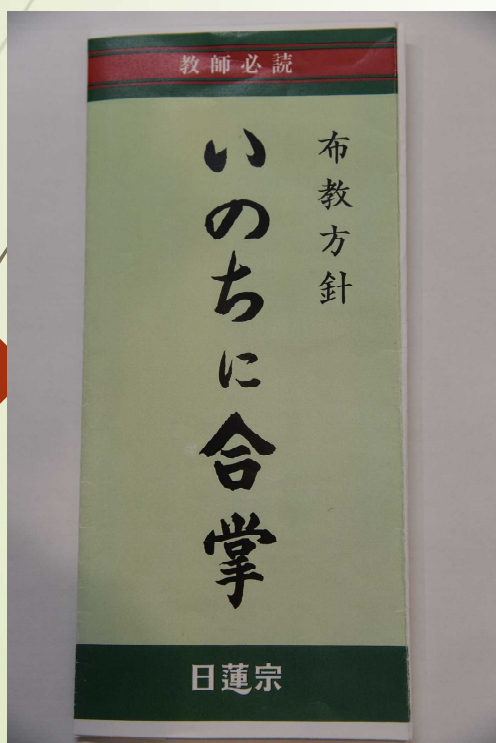 教師必読
布教方針
いのちに合掌
日蓮宗